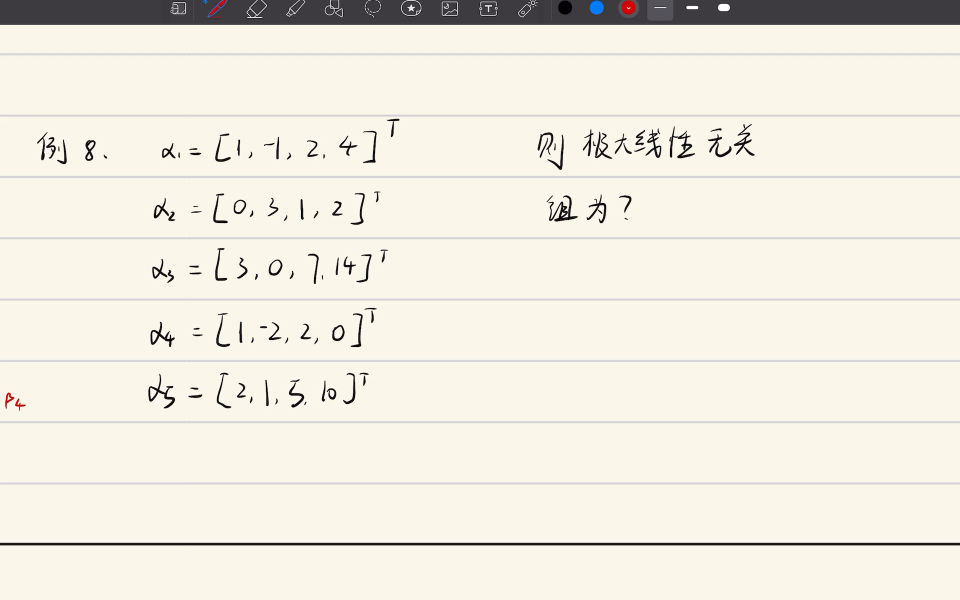 例8. α₁=[1,-1,2,4]ᵀ 则极大线性无关
α₂=[0,3,1,2]ᵀ 组为?
α₃=[3,0,7,14]ᵀ
α₄=[1,-2,2,0]ᵀ
α₅=[2,1,5,10]ᵀ
β₄